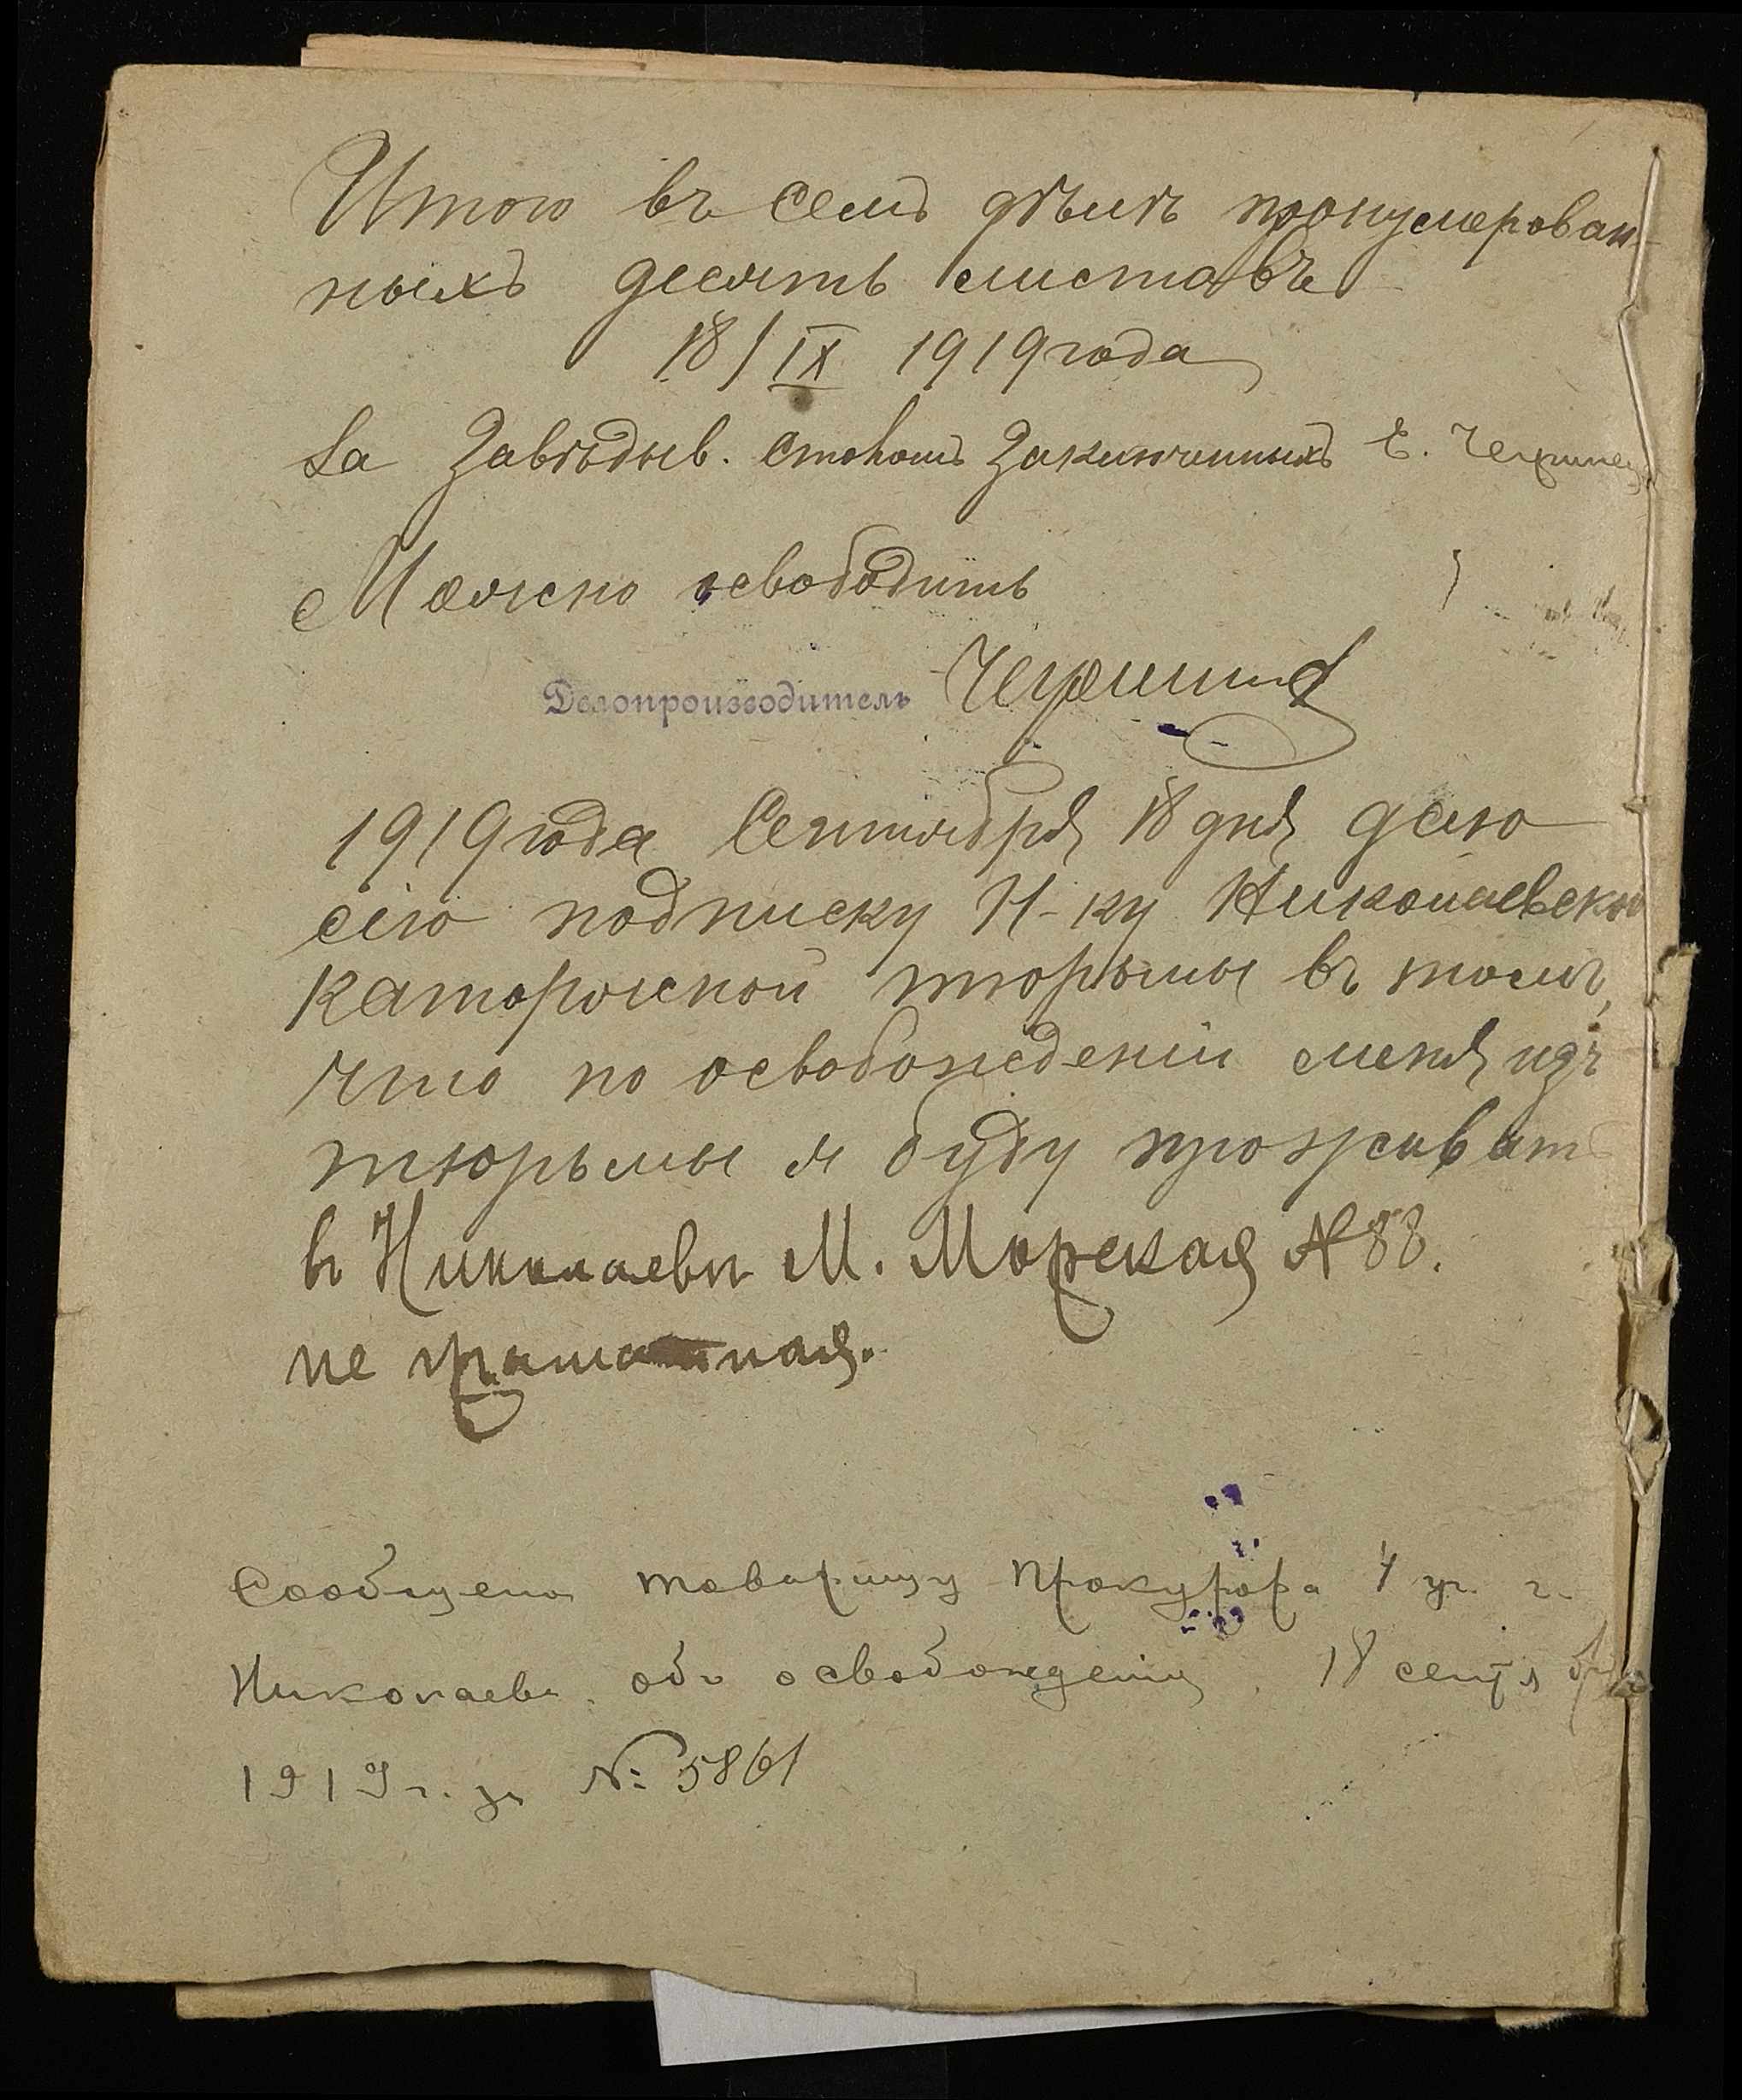 Итого въ семъ дѣлѣ пронумерован-
ныхъ десять листовъ
18/IX 1919 года
За Завѣдыв. столомъ Заключенныхъ Е.
Можно освободить
Делопроизводитель
1919 года Сентября 18 дня даю
сію подписку Н-ку Николаевской
каторжной тюрьмы въ томъ,
что по освобожденіи меня изъ
тюрьмы я буду проживать
въ Николаевѣ М. Морская № 88.
не грамотная.
Сообщено товарищу Прокурора 4 уч. г.
Николаева объ освобожденіи 18 сентября
1919 г. за № 5861